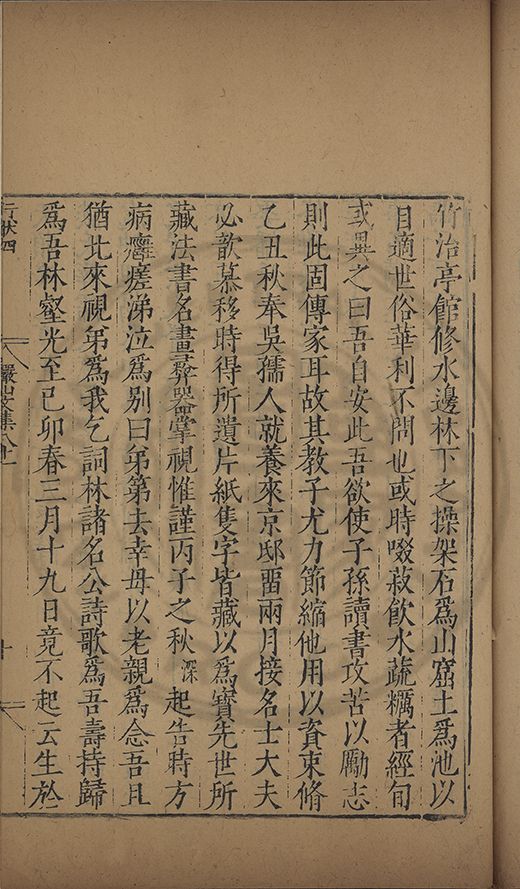 竹治亭館修水邊林下之操架石爲山窟土爲池以
自適世俗華利不問也或時啜菽飮水蔬糲者經旬
或異之曰吾自安此吾欲使子孫讀書攻苦以勵志
則此固傳家耳故其教子尤力節縮他用以資束脩
乙丑秋奉吳孺人就養來京邸畱兩月接名士大夫
必歆慕移時得所遺片紙隻字皆藏以爲寶先世所
藏法書名畫彞器掌視惟謹丙子之秋深起告時方
病癰瘥涕泣爲别曰弟第去幸毋以老親爲念吾且
猶比來視弟爲我乞詞林諸名公詩歌爲吾壽持歸
爲吾林壑光至己卯春三月十九日竟不起云生於
行狀四
儼山文集八十一
十